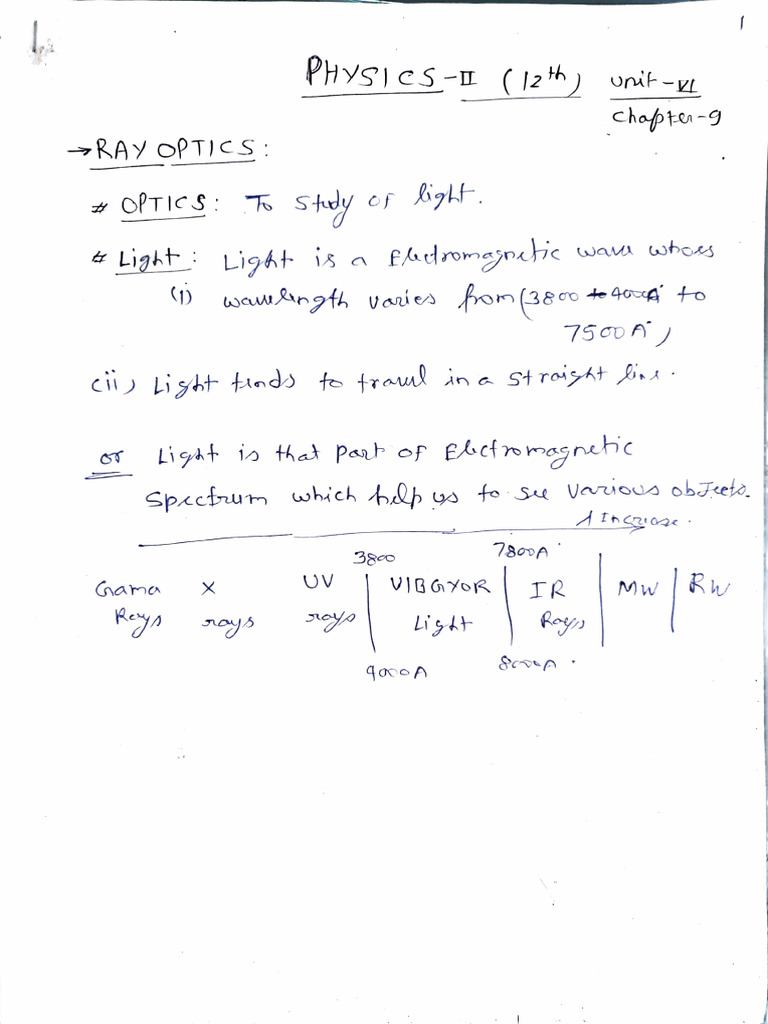 1
PHYSICS-II (12th) Unit-VI
Chapter-9
→ RAY OPTICS:
# OPTICS: To study of light.
# Light: Light is a Electromagnetic wave whoes
(i) wavelength varies from (3800 to 4000A° to
7500A°)
(ii) Light tends to travel in a straight line.
or Light is that part of Electromagnetic
Spectrum which help us to see various objects.
λ Increase.
3800 7800A°
Gama X UV VIBGYOR IR MW RW
Rays rays rays Light Rays
4000A 8000A°